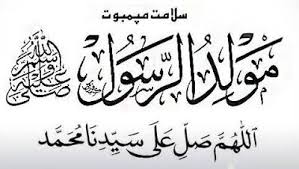 سلامت ميمبوت
مَوْلِدُ الرَّسُوْل
صلى الله عليه وسلم
اَللّٰهُمَّ صَلِّ عَلَى سَيِّدِنَا مُحَمَّد